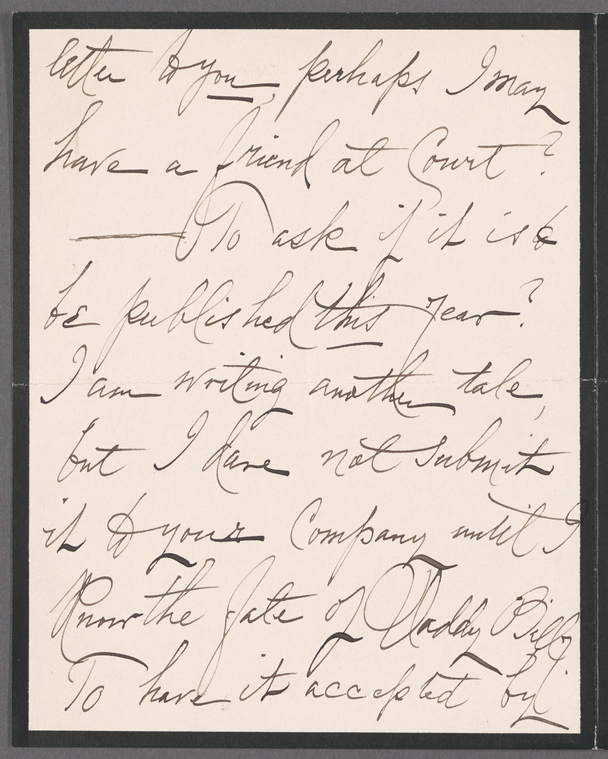 letter to you, perhaps I may
have a friend at Court?
— To ask if it is to
be published this year?
I am writing another tale,
but I dare not submit
it to your Company until I
Know the fate of Daddy Bill,
To have it accepted by